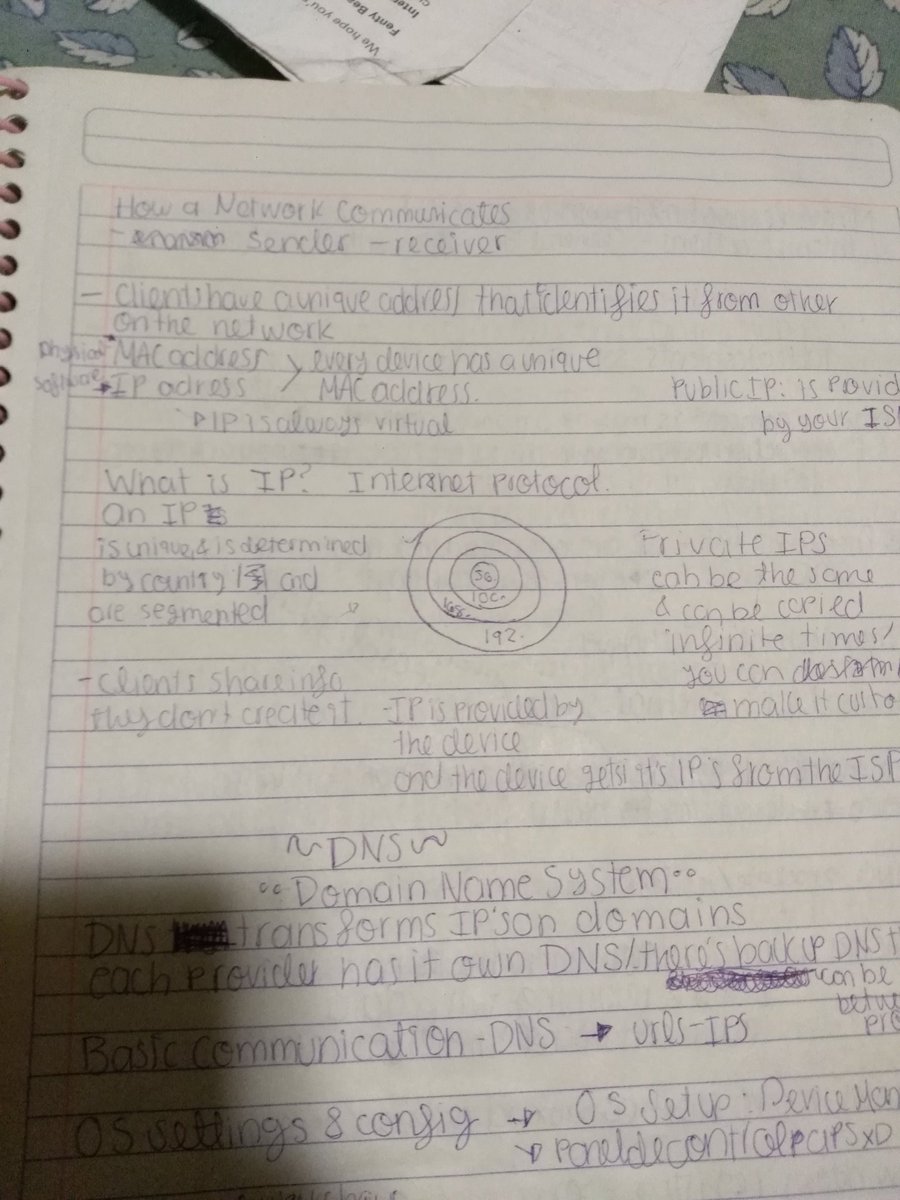 We hope you'
Fenty Bea
Inter
How a Network Communicates
- sender - receiver
- Clients have a unique address that identifies it from other
on the network
Physical → MAC address > every device has a unique
Software → IP adress MAC address.
Public IP: is Provid
by your IS
IP is always virtual
What is IP? Internet protocol.
an IP
is unique, & is determined
by country / and
are segmented
56.
100.
192.
Private IPs
can be the same
& can be copied
infinite times/
you can
make it custo
- Clients share info
they don't create it. - IP is provided by
the device
and the device gets it's IP's from the ISP
~DNS~
°°Domain Name System°°
DNS transforms IP's on domains
each provider has it own DNS/there's backup DNS t
can be
betwe
pro
Basic communication - DNS → urls-IPS
OS settings & config → OS Setup: Device Man
panel de control PC IPS xD